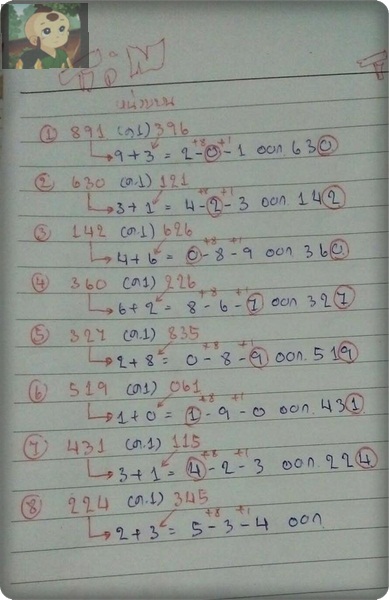 หน่วยบน
① 891 (ต.1) 396
9+3 = 2-0-1 ออก 630
+8 +1
② 630 (ต.1) 121
3+1 = 4-2-3 ออก 142
+8 +1
③ 142 (ต.1) 626
4+6 = 0-8-9 ออก 360
+8 +1
④ 360 (ต.1) 226
6+2 = 8-6-7 ออก 327
+8 +1
⑤ 327 (ต.1) 835
2+8 = 0-8-9 ออก. 519
+8 +1
⑥ 519 (ต.1) 061
1+0 = 1-9-0 ออก. 431
+8 +1
⑦ 431 (ต.1) 115
3+1 = 4-2-3 ออก. 224
+8 +1
⑧ 224 (ต.1) 345
2+3 = 5-3-4 ออก
+8 +1